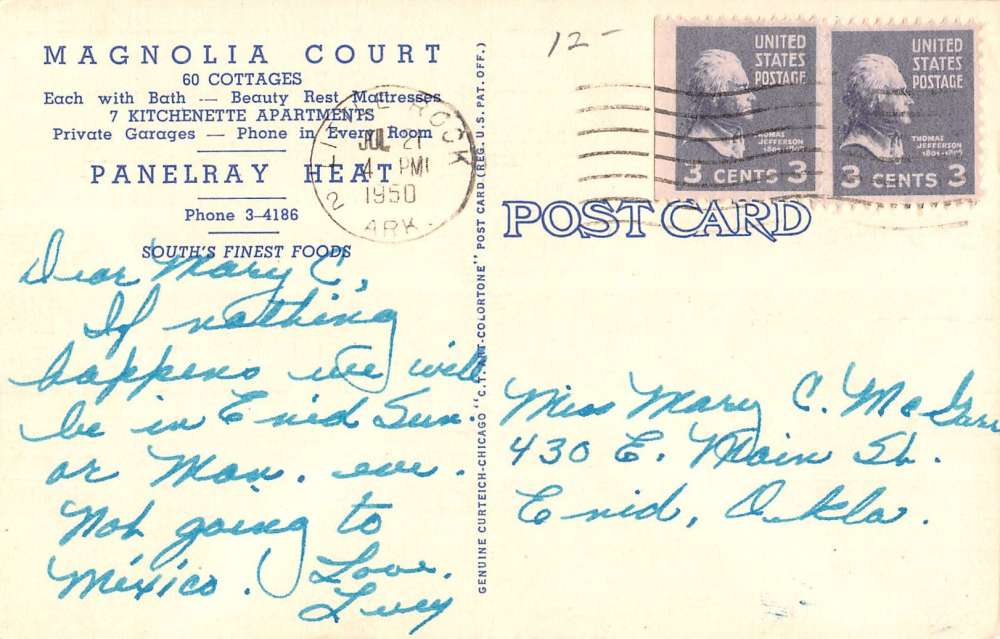 MAGNOLIA COURT
60 COTTAGES
Each with Bath — Beauty Rest Mattresses
7 KITCHENETTE APARTMENTS
Private Garages — Phone in Every Room
PANELRAY HEAT
Phone 3-4186
SOUTH'S FINEST FOODS
LITTLE ROCK
2
JUL 21
4 PM
1950
ARK.
12-
UNITED STATES POSTAGE
THOMAS JEFFERSON
1801-1809
3 CENTS 3
UNITED STATES POSTAGE
THOMAS JEFFERSON
1801-1809
3 CENTS 3
POST CARD
GENUINE CURTEICH-CHICAGO "C.T. ART-COLORTONE" POST CARD (REG. U.S. PAT. OFF.)
Dear Mary C,
If nothing
happens we will
be in Enid Sun.
or Mon. eve.
Not going to
México. Love.
Lucy
Miss Mary C. McGarr
430 E. Main St.
Enid, Okla.